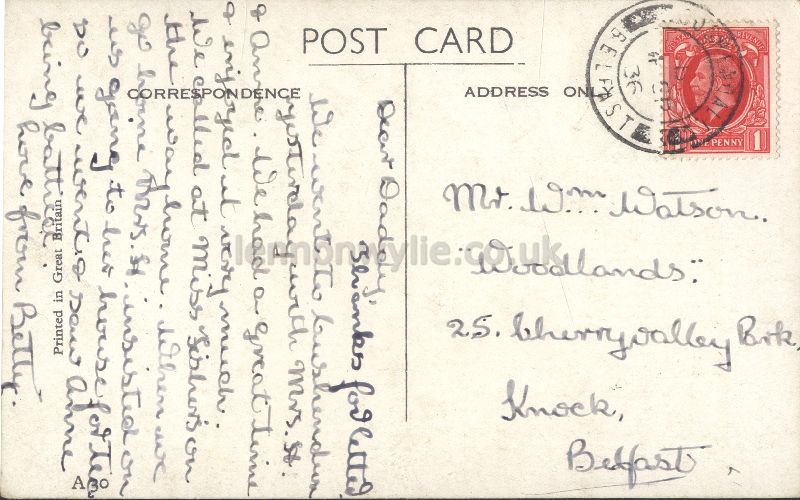 POST CARD
CORRESPONDENCE
ADDRESS ONLY
Dear Daddy,
Thanks for letter
We went to Cushendun
yesterday with Mrs. H.
& Anne. We had a great time
& enjoyed it very much.
We called at Miss on
the way home. When we
go home Mrs. H. insisted on
us going to her house for tea
so we went & saw Anne
being bathed.
love from Betty.
Mr. Wm. Watson.
"Woodlands".
25. Cherryvalley Prk,
Knock,
Belfast
BELFAST
36
ONE PENNY 1
Printed in Great Britain
A 30
lemonwylie.co.uk